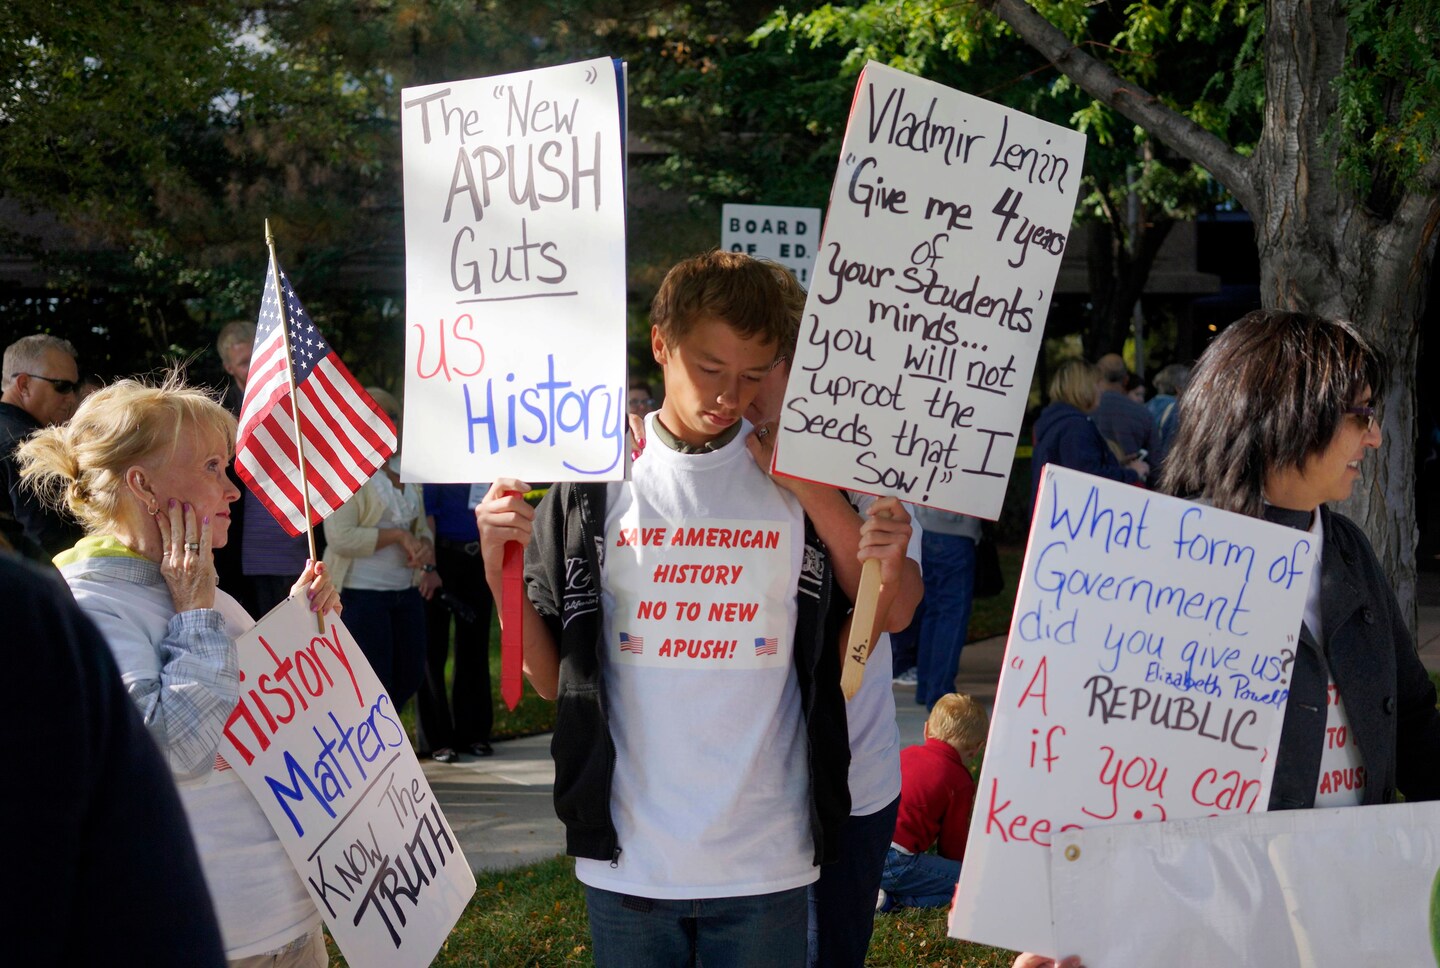 The "New"
APUSH
Guts
US
History
BOARD
OF ED.
Vladmir Lenin
"Give me 4 years
of
your students'
minds...
you will not
uproot the
Seeds that I
Sow!"
SAVE AMERICAN
HISTORY
NO TO NEW
APUSH!
A.S.
History
Matters
KNOW THE
TRUTH
"What form of
Government
did you give us?"
Elizabeth Powell
"A REPUBLIC,
if you can
keep it
TO
APUSH